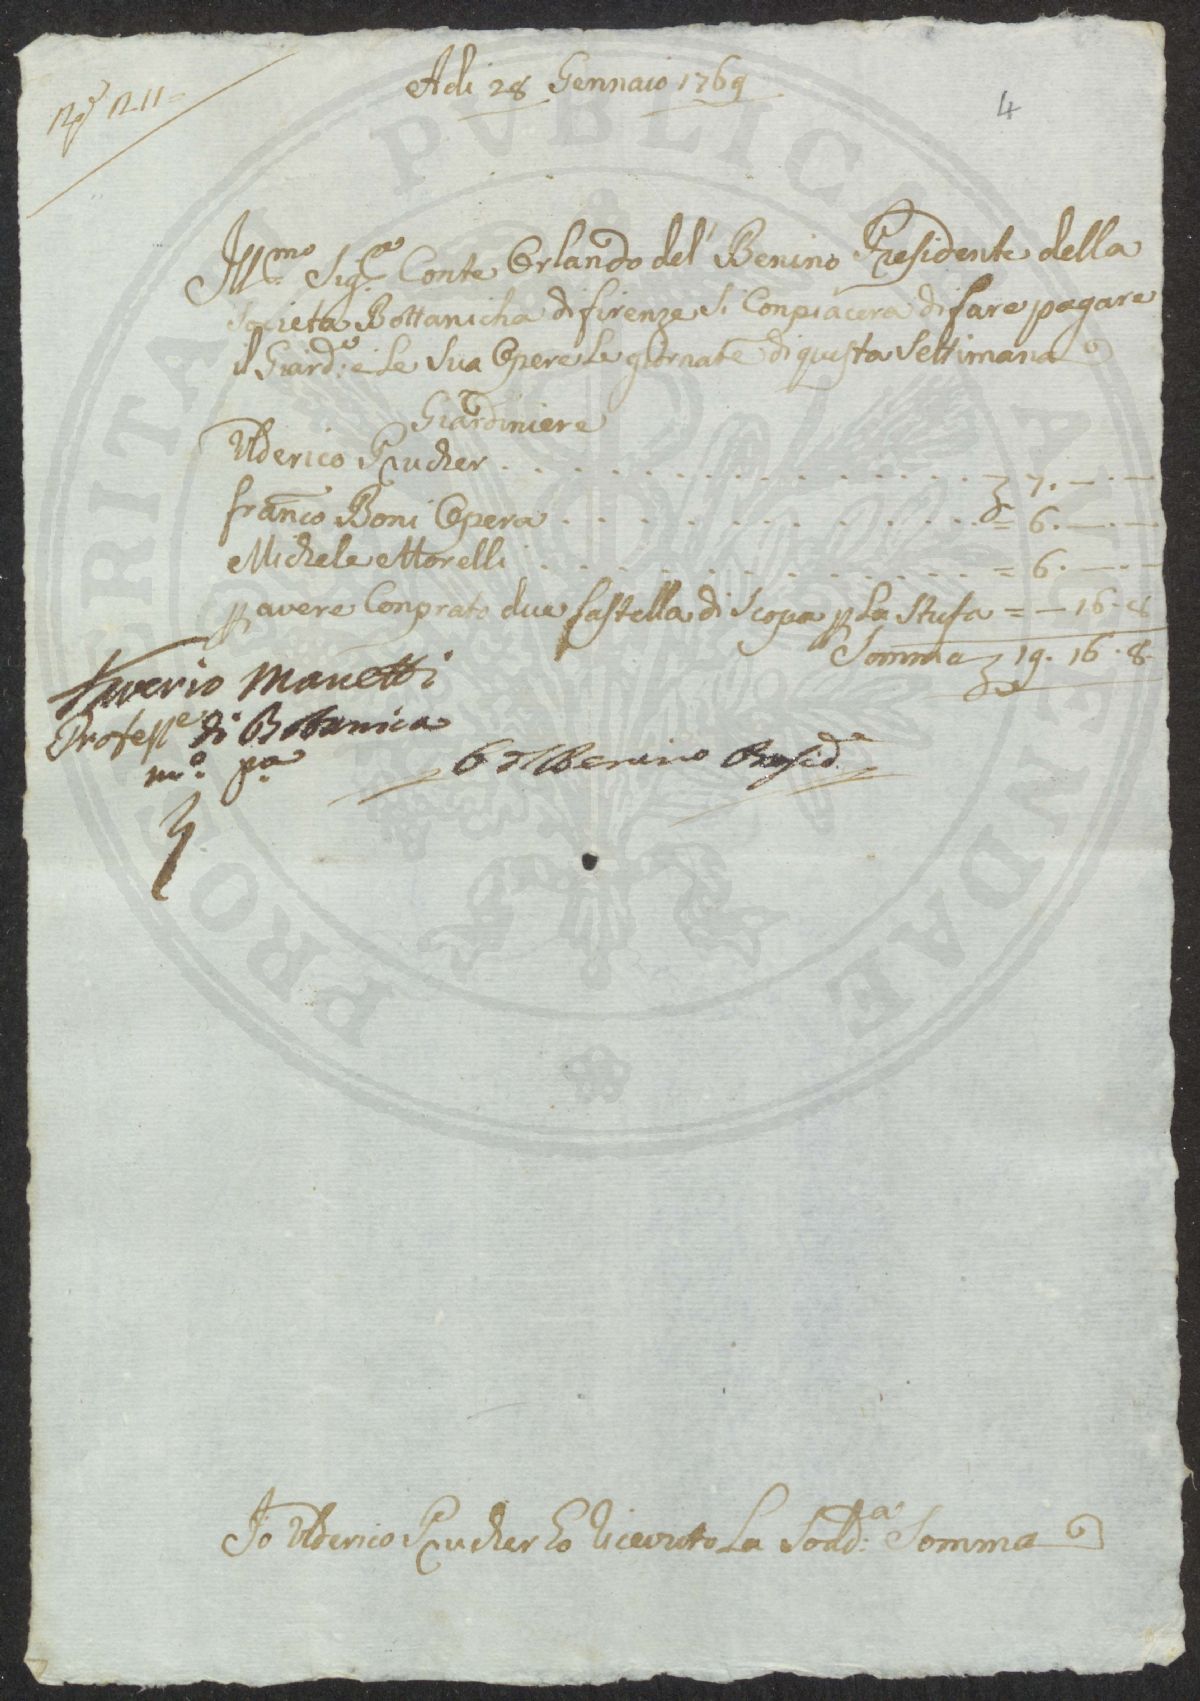 Adi 28 Gennaio 1769
4
Ill.mo Sig.e Conte Orlando del' Benino Presidente della
Societa Bottanicha di firenze Si Conpiacera di fare pagare
il Giard.e e Le Sua Opere Le giornate di questa Settimana
Giardiniere
Ulderico Prucher . . . . . . . . . . . . . . . . 7. — . —
franco Boni Opera . . . . . . . . . . . . . = 6. — . —
Michele Morelli . . . . . . . . . . . . . = 6. — . —
p avere Conprato due fastella di Scopa p La Stufa = — 16. 8
Somma 19. 16. 8
Saverio Manetti
Profess.e di Botanica
mo. pa.
O del Benino Presid.e
Io Ulderico Prucher ho riceuto La Sodd.a Somma
PROSPERITATI PVBLICAE AVGENDAE